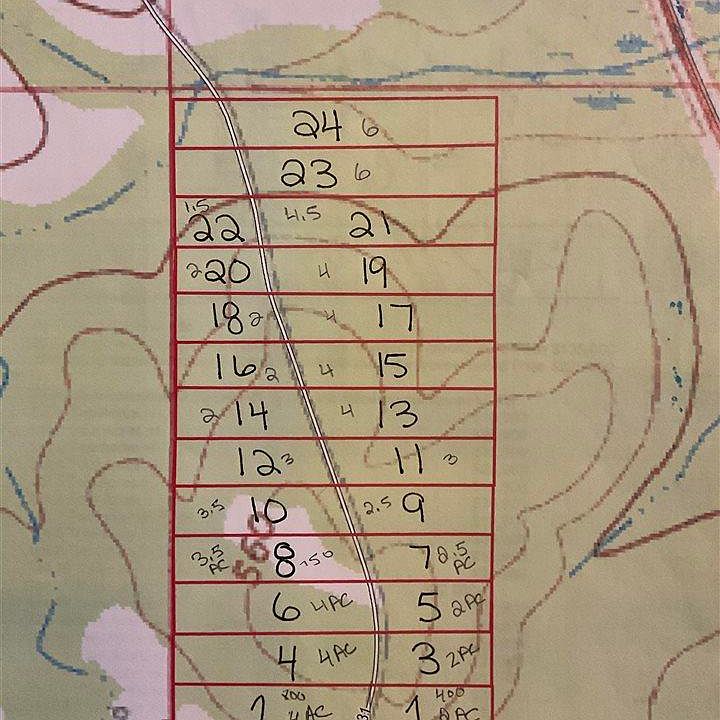 24 6
23 6
1.5 22 4.5 21
2 20 4 19
18 2 4 17
16 2 4 15
2 14 4 13
12 3 11 3
3.5 10 2.5 9
3.5 AC 8 .50 7 2.5 AC
560
6 4AC 5 2AC
4 4AC 3 2AC
800 400
4AC 1 2AC
31